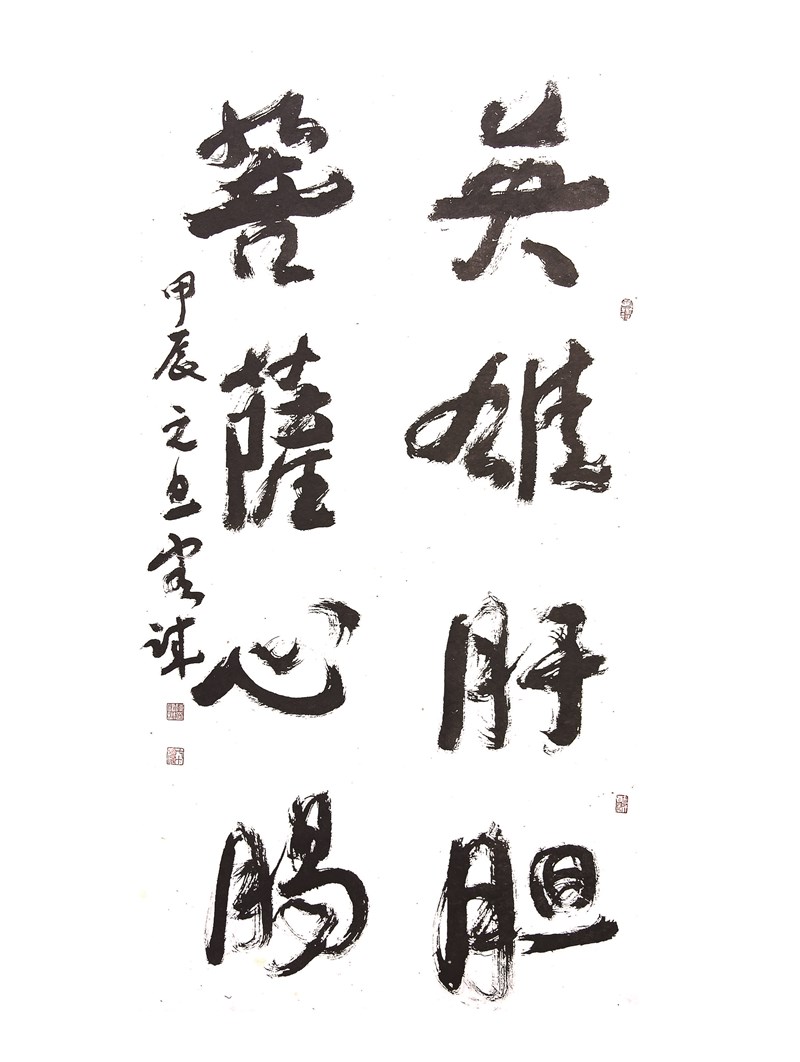 英雄肝胆
菩萨心肠
甲辰元旦